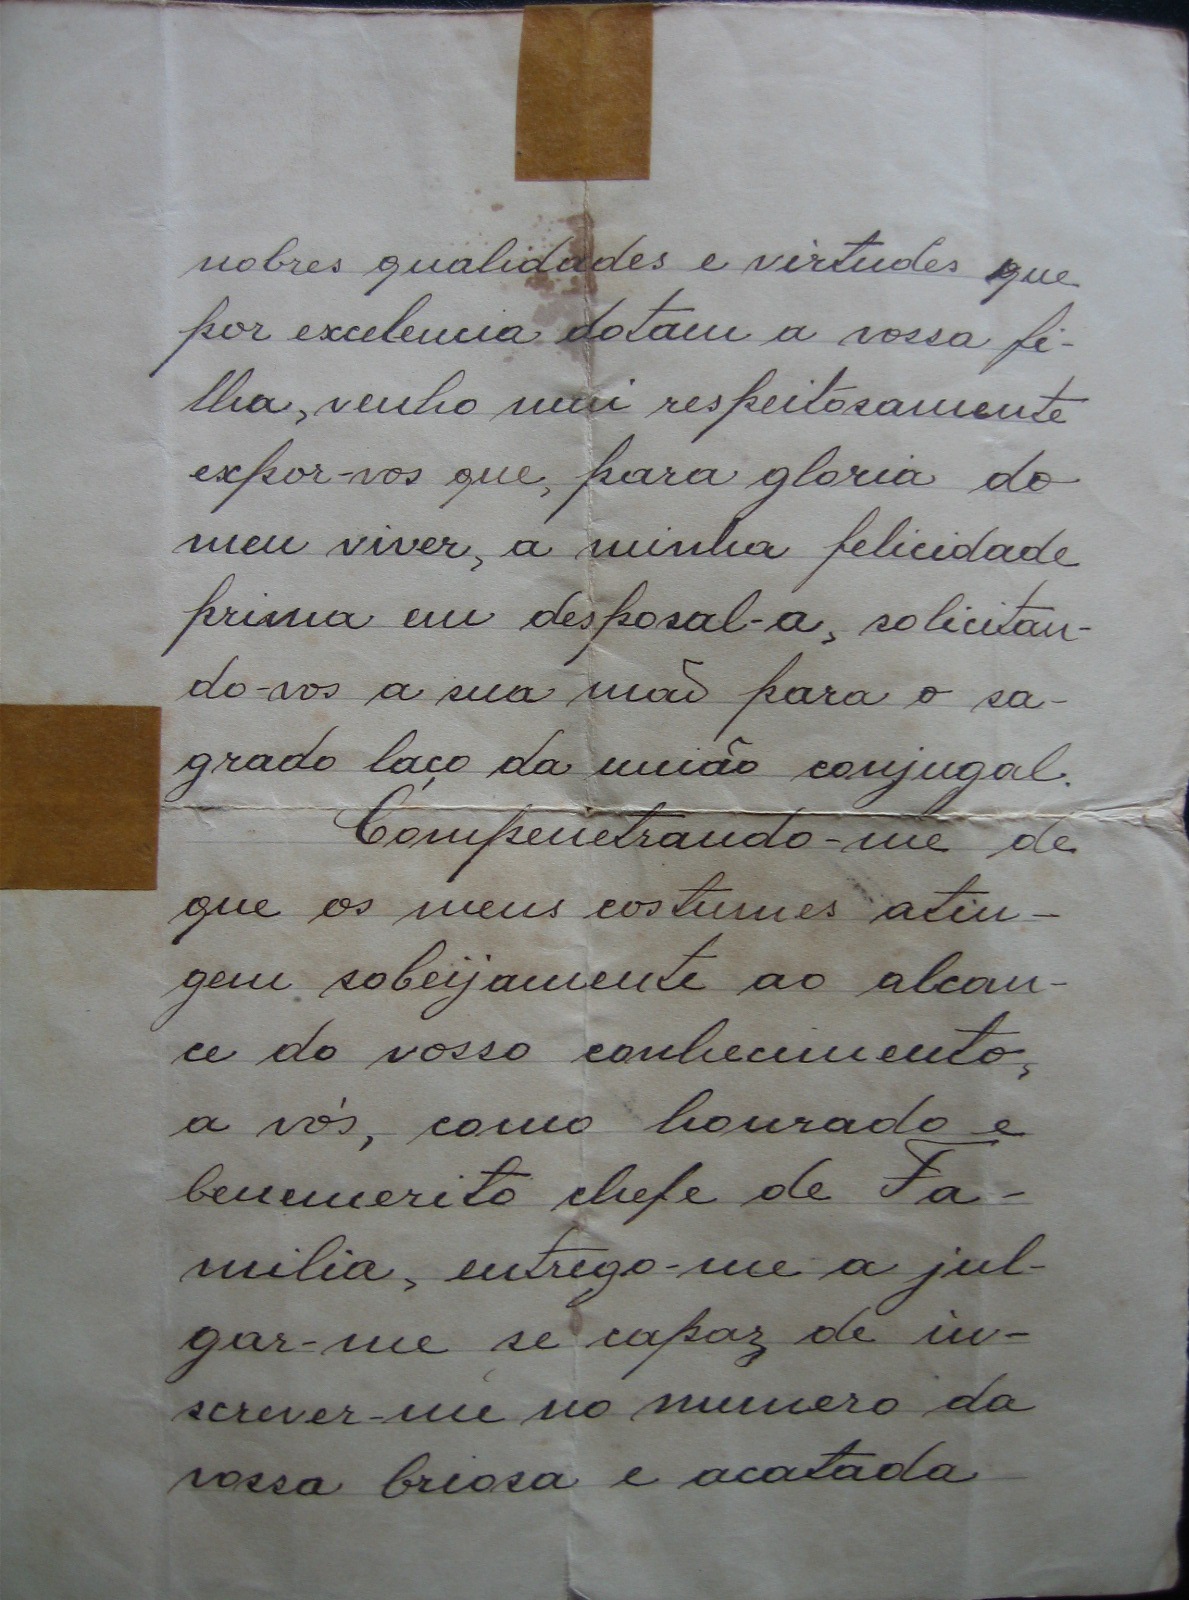 nobres qualidades e virtudes que
por excelencia dotam a vossa fi-
lha, venho mui respeitosamente
expor-vos que, para gloria do
meu viver, a minha felicidade
prima em desposal-a, solicitan-
do-vos a sua mão para o sa-
grado laço da união conjugal.
Compenetrando-me de
que os meus costumes atin-
gem sobeijamente ao alcan-
ce do vosso conhecimento,
a vós, como honrado e
benemerito chefe de Fa-
milia, entrego-me a jul-
gar-me se capaz de in-
screver-me no numero da
vossa briosa e acatada